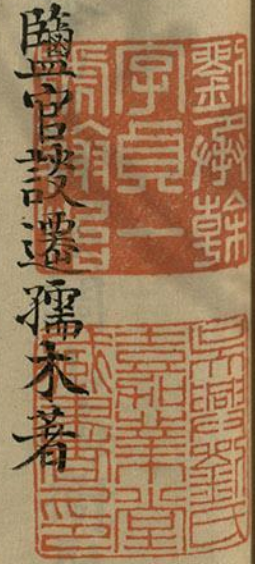 鹽官談遷孺木著
劉承幹
字貞一
號翰怡
吳興劉氏
嘉業堂
藏書印